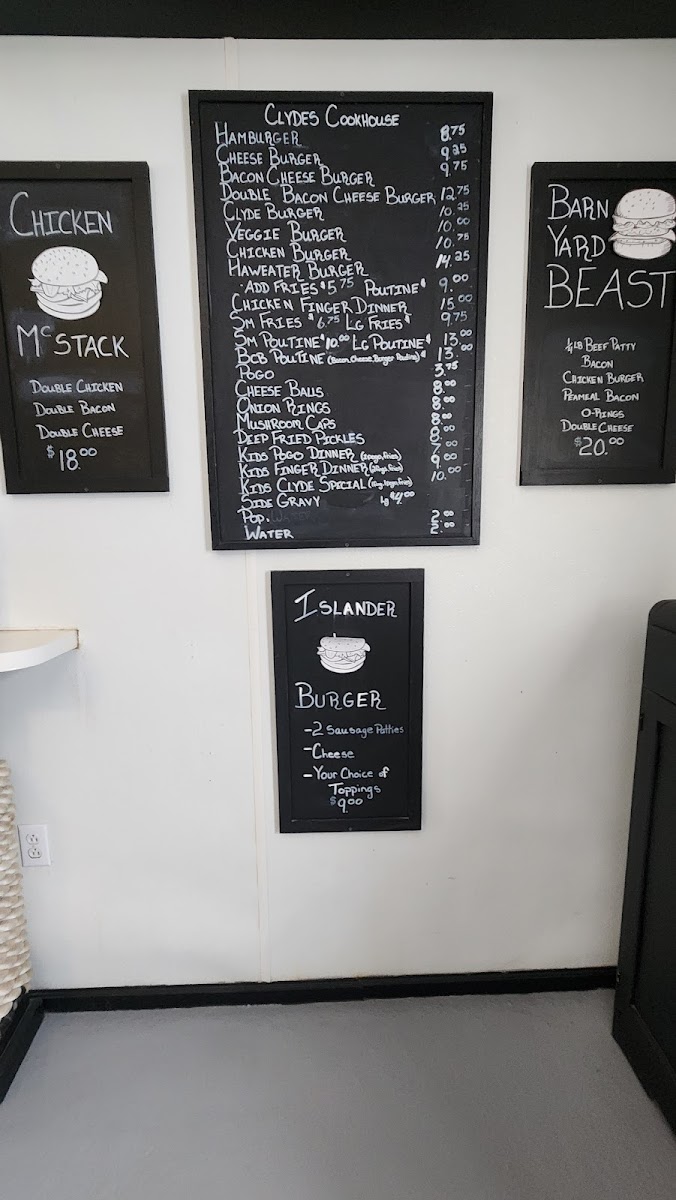 Clydes Cookhouse
Hamburger 8.75
Cheese Burger 9.25
Bacon Cheese Burger 9.75
Double Bacon Cheese Burger 12.75
Clyde Burger 10.25
Veggie Burger 10.00
Chicken Burger 10.75
Haweater Burger 14.25
·Add Fries $5.75 Poutine $ 9.00
Chicken Finger Dinner 15.00
Sm Fries $6.75 Lg Fries $ 9.75
Sm Poutine $10.00 Lg Poutine $ 13.00
BCB Poutine (Bacon, Cheese, Burger Poutine) $ 13.00
Pogo 3.75
Cheese Balls 8.00
Onion Rings 8.00
Mushroom Caps 8.00
Deep Fried Pickles 8.00
Kids Pogo Dinner 7.00
Kids Finger Dinner 9.00
Kids Clyde Special 10.00
Side Gravy Lg $4.00
Pop. 2.00
Water 2.00
Chicken
McStack
Double Chicken
Double Bacon
Double Cheese
$18.00
Barn
Yard
Beast
1/4 lb Beef Patty
Bacon
Chicken Burger
Peameal Bacon
O-Rings
Double Cheese
$20.00
Islander
Burger
-2 Sausage Patties
-Cheese
-Your Choice of
Toppings
$9.00